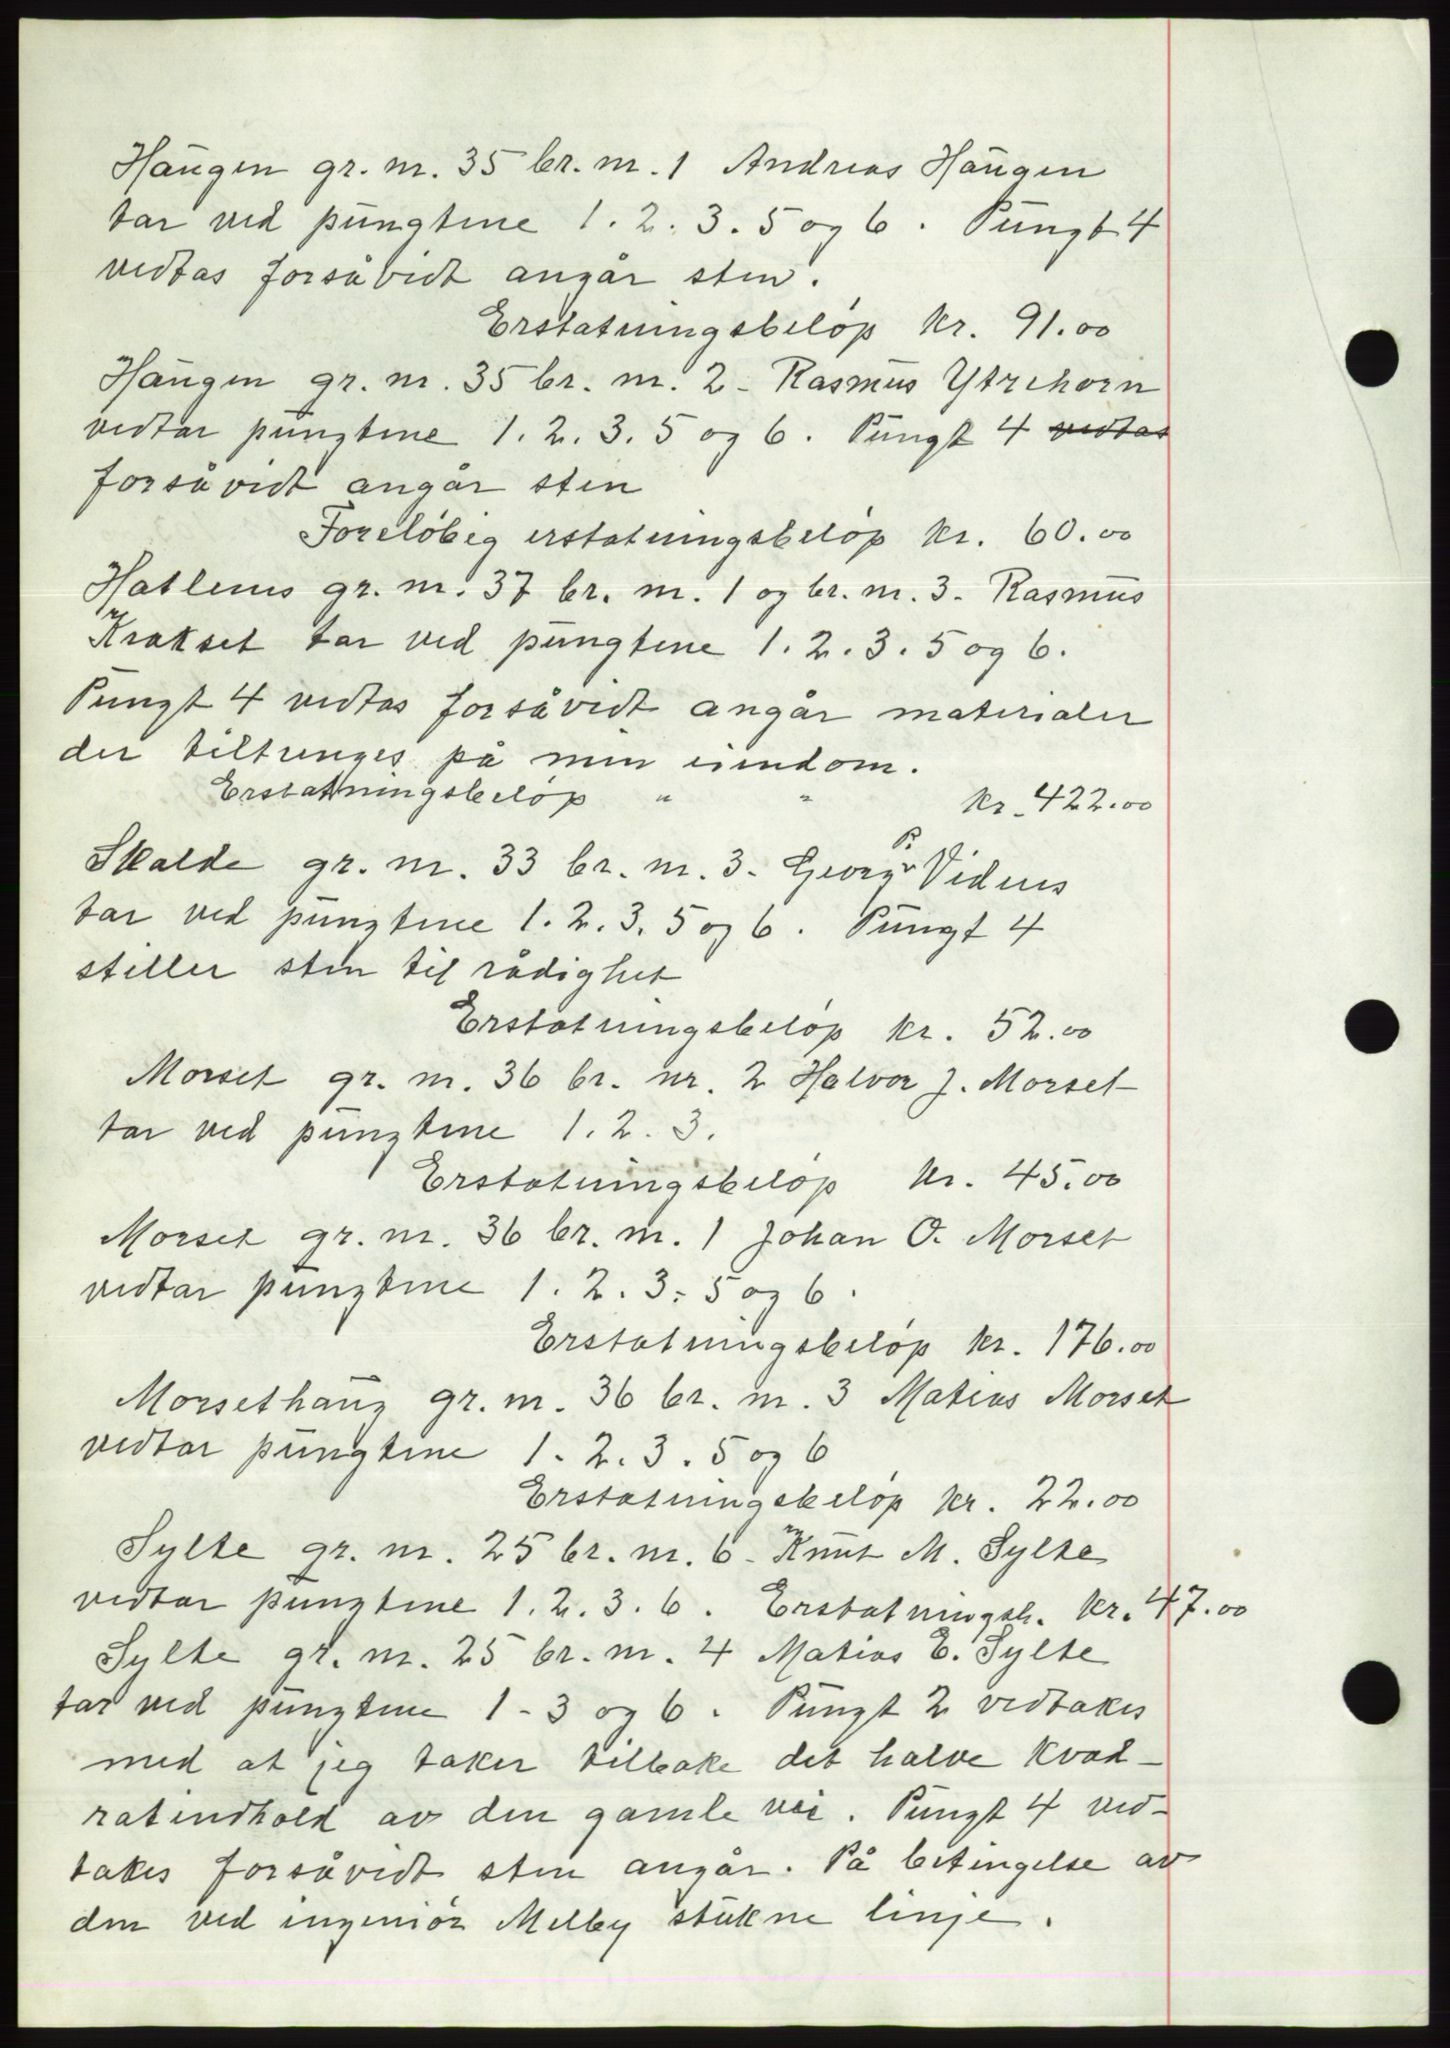 Haugen gr. nr. 35 br. nr. 1 Andreas Haugen
tar ved pungtene 1. 2. 3. 5 og 6. Pungt 4
vedtas forsåvidt angår sten.
Erstatningsbeløp kr. 91.00
Haugen gr. nr. 35 br. nr. 2 - Rasmus Ytrehorn
vedtar pungtene 1. 2. 3. 5 og 6. Pungt 4 vedtas
forsåvidt angår sten
Foreløbig erstatningsbeløp kr. 60.00
Hatlenes gr. nr. 37 br. nr. 1 og br. nr. 3. Rasmus
Krakset tar ved pungtene 1. 2. 3. 5 og 6.
Pungt 4 vedtas forsåvidt angår materialer
der tiltrenges på min eiendom.
Erstatningsbeløp " " kr. 422.00
Skalde gr. nr. 33 br. nr. 3. Georg P. Videnes
tar ved pungtene 1. 2. 3. 5 og 6. Pungt 4
stiller sten til rådighet
Erstatningsbeløp kr. 52.00
Morset gr. nr. 36 br. nr. 2 Halvor J. Morset
tar ved pungtene 1. 2. 3.
Erstatningsbeløp kr. 45.00
Morset gr. nr. 36 br. nr. 1 Johan O. Morset
vedtar pungtene 1. 2. 3. 5 og 6.
Erstatningsbeløp kr. 176.00
Morsethaug gr. nr. 36 br. nr. 3 Matias Morset
vedtar pungtene 1. 2. 3. 5 og 6
Erstatningsbeløp kr. 22.00
Sylte gr. nr. 25 br. nr. 6 - Knut M. Sylte
vedtar pungtene 1. 2. 3. 6. Erstatningsb. kr. 47.00
Sylte gr. nr. 25 br. nr. 4 Matias E. Sylte
tar ved pungtene 1 - 3 og 6. Pungt 2 vedtakes
med at jeg taker tilbake det halve kvad-
ratindhold av den gamle vei. Pungt 4 ved-
takes forsåvidt sten angår. På betingelse av
den ved ingeniør Melby stukne linje.